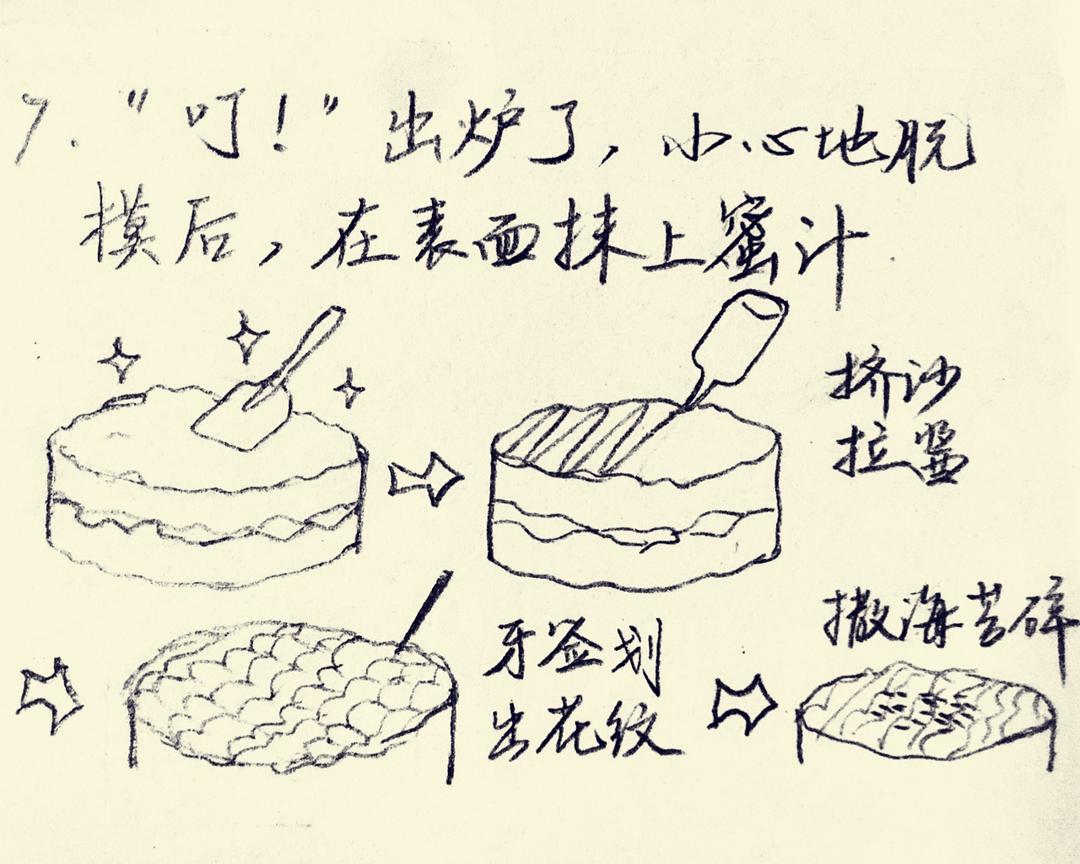 7. "叮！"出炉了，小心地脱
模后，在表面抹上蜜汁
挤沙
拉酱
撒海苔碎
牙签划
出花纹